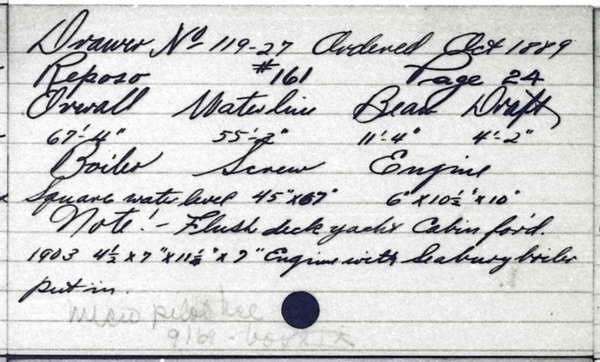 Drawer No 119-27 Ordered Oct 1889
Reposo #161 Page 24
Overall Waterline Beam Draft
67'-4" 55'-2" 11'-4" 4'-2"
Boiler Screw Engine
Square water level 45"x67" 6"x10½"x10"
Note:- Flush deck yacht Cabin for'd.
1903 4½x7"x11½"x7" Engine with Seabury boiler
put in.